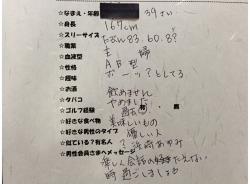 ☆なまえ・年齢 39さい
☆身長 167cm
☆スリーサイズ たぶん83.60.8?
☆職業 主婦
☆血液型 AB型
☆性格 ボーッ?としてる
☆趣味
☆お酒 飲めません
☆タバコ やめました
☆ゴルフ経験 過去
☆好きな食べ物 美味しいもの
☆好きな男性のタイプ 優しい人
☆似ている?有名人 ?浜崎あゆみ
☆男性会員さまへメッセージ
楽しく会話の絶えない
時過ごしましょう